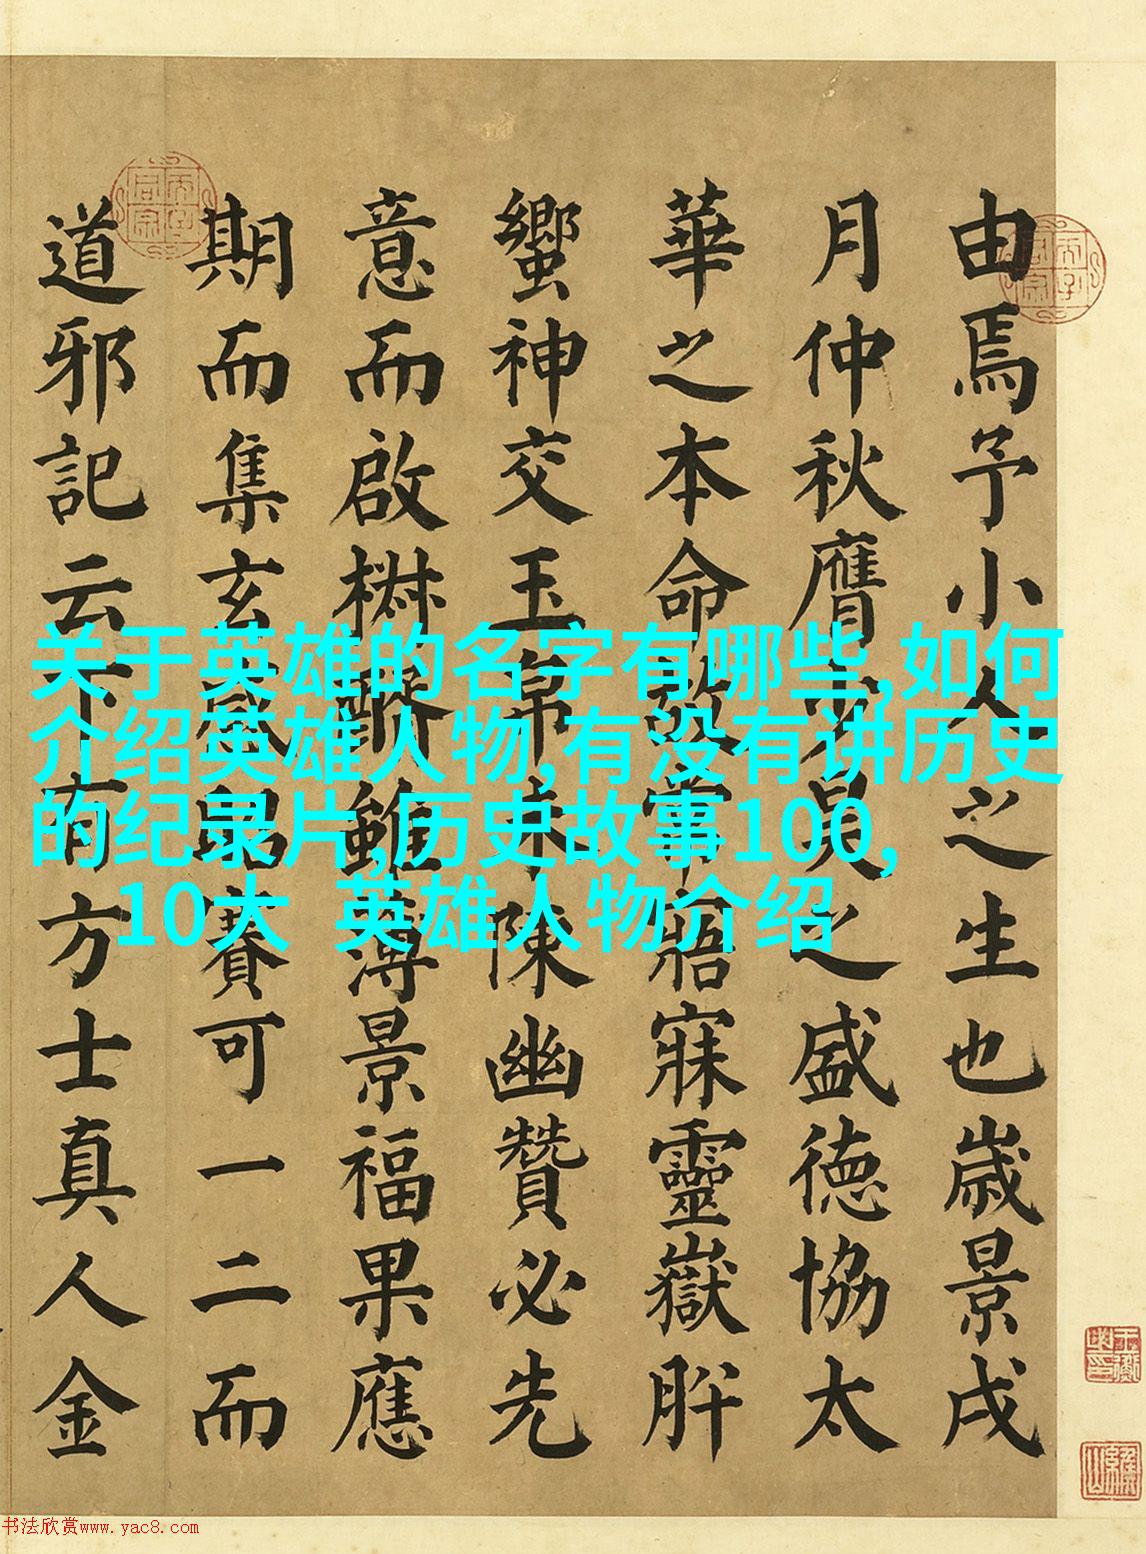 关于英雄的名字有哪些,如何
介绍英雄人物,有没有讲历史
的纪录片,历史故事100,
10大 英雄人物介绍
由焉予小之生也歲景戌
月仲秋膺之盛德協太
華之本命故常寤寐靈嶽肸
蠁神交玉帛未陳幽贊必先
意而啟雖薄景福果應
期而集玄感昭賽可一二而
道邪記云下有方士真人金
书法欣赏www.yac8.com